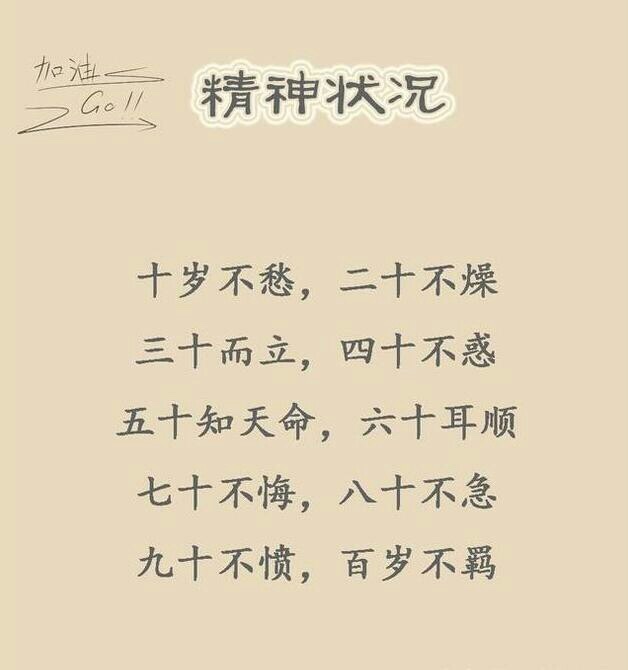 加油
Go!!
精神状况
十岁不愁，二十不燥
三十而立，四十不惑
五十知天命，六十耳顺
七十不悔，八十不急
九十不愤，百岁不羁